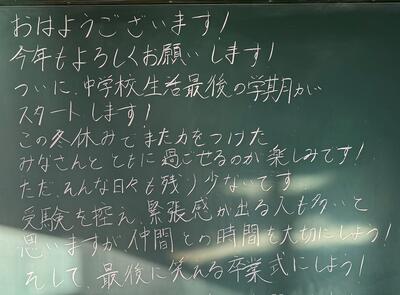 おはようございます!
今年もよろしくお願いします!
ついに、中学校生活最後の学期が
スタートします!
この冬休みでまた力をつけた
みなさんとともに過ごせるのが楽しみです!
ただ、そんな日々も残り少ないです。
受験を控え、緊張感が出る人も多いと
思いますが仲間との時間を大切にしよう!
そして、最後に笑える卒業式にしよう!